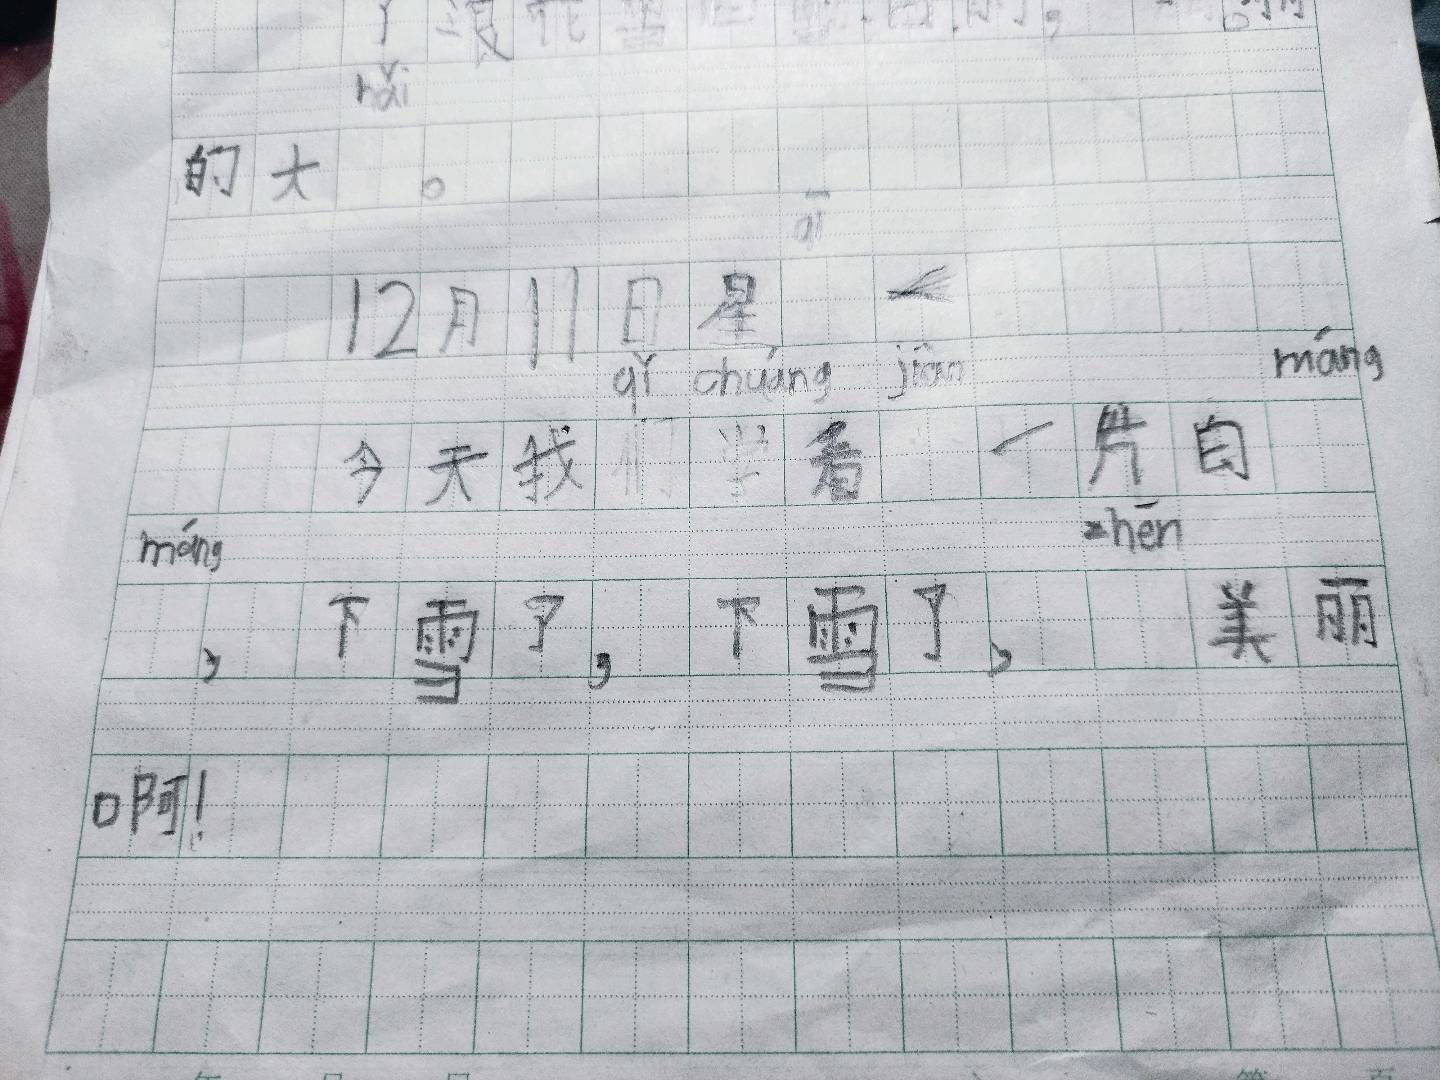 hǎi
的大。
qī
12月11日星
qǐ chuáng jiàn máng
今天我看一片白
máng zhēn
,下雪了,下雪了,美丽
啊!